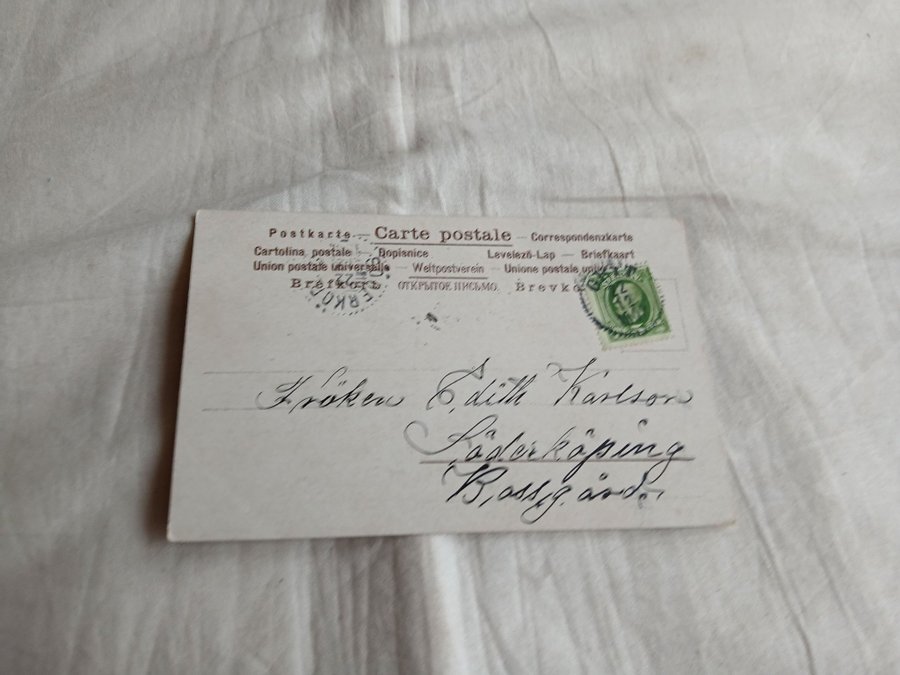 Postkarte — Carte postale — Correspondenzkarte
Cartolina postale — Dopisnice Levelező-Lap — Briefkaart
Union postale universelle — Weltpostverein — Unione postale
Brefkort ОТКРЫТОЕ ПИСЬМО.
Fröken Edith Karlson
Söderköping